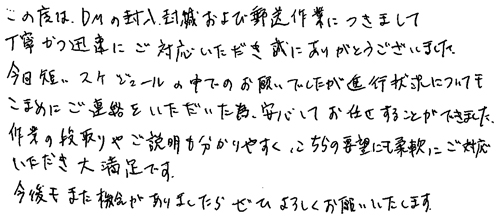 この度は、DMの封入封緘および郵送作業につきまして
丁寧かつ迅速にご対応いただき誠にありがとうございました。
今回短いスケジュールの中でのお願いでしたが進行状況についても
こまめにご連絡をいただいた為、安心してお任せすることができました。
作業の段取りやご説明も分かりやすく、こちらの要望にも柔軟にご対応
いただき大満足です。
今後もまた機会がありましたらぜひよろしくお願いいたします。